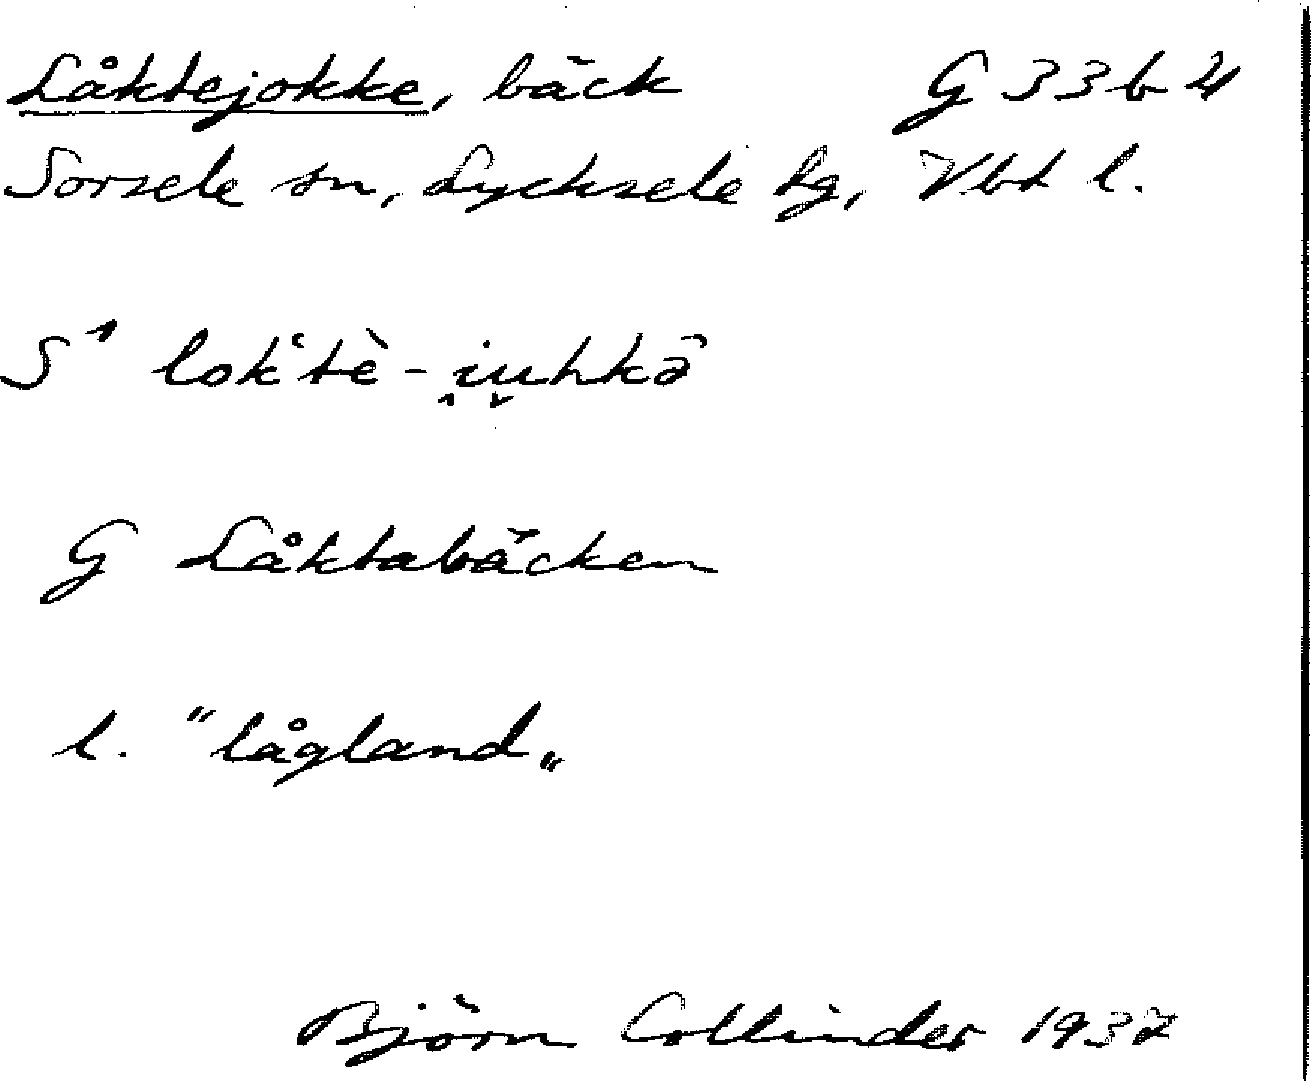 Låktejokke, bäck G 33 b 4
Sorsele sn, Lycksele lg, Vbt l.
S¹ lok‘tè-i̭u̬hkə̑
G Låktabäcken
l. "lågland„
Björn Collinder 1937